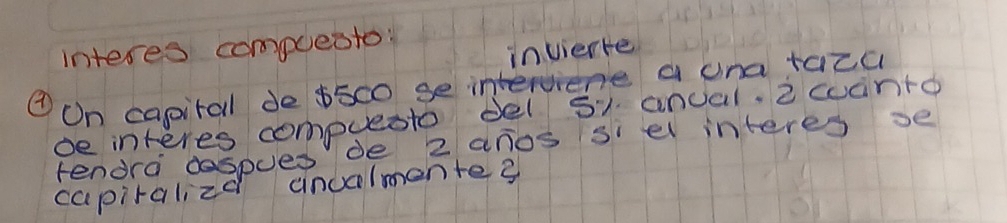 interes compuesto:
invierte
① Un capital de $500 se interviene a una taza
de interes compuesto del 5% anual. ¿cuanto
tendrá despues de 2 años si el interes se
capitaliza anualmente?